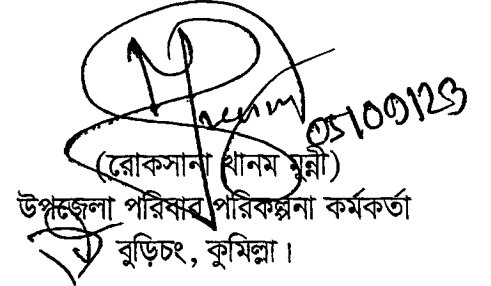 05/09/23
(রোকসানা খানম মুন্নী)
উপজেলা পরিবার পরিকল্পনা কর্মকর্তা
বুড়িচং, কুমিল্লা।